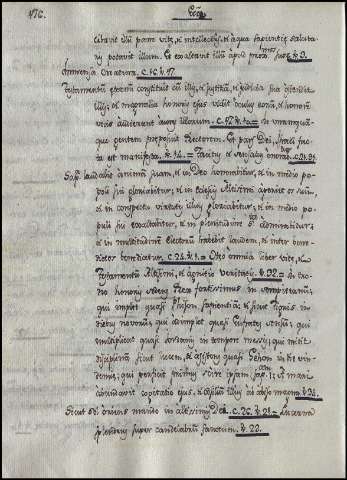 476.
cibavit illum pane vitæ, et intellectus, et aqua sapientiæ salutaris
potavit illum. Et exaltavit illum apud proximos suos. v. 3.
Creatura. c. 16. v. 17.
Testamentum æternum constituit cum illis, et justitiam, et judicia sua ostendit
illis; et magnalia honoris ejus vidit oculus eorum, et honorem
vocis audierunt aures illorum. c. 17. v. = in unamquamque
gentem præposuit Rectorem. Et pars Dei, Israel facta
est manifesta. v. 14. =
Sapientia laudabit animam suam, et in Deo honorabitur, et in medio
populi sui gloriabitur; et in Ecclesiis Altissimi aperiet os suum,
et in conspectu virtutis illius gloriabitur, et in medio populi
sui exaltabitur, et in plenitudine admirabitur;
et in multitudine Electorum habebit laudem, et inter benedictos
benedicetur. c. 24. v. 1. = Hæc omnia liber vitæ, et
Testamentum Altissimi, et agnitio veritatis. v. 32. =
honoris sedere fortissimum in sempiternum;
qui implet quasi Phison sapientiam, et sicut Tigris in
diebus novorum; qui adimplet quasi Eufrates sensum; qui
multiplicat quasi Jordanis in tempore messis; qui mittit
disciplinam sicut lucem, et assistens quasi Gehon in die vindemiæ;
qui perficit primus scire ipsam, a mari
abundavit cogitatio ejus, et consilium illius ab abysso magna. v. 39.
Sicut sol oriens mundo in altissimis Dei. c. 26. v. 21. = Lucerna
splendens super candelabrum sanctum. v. 22.